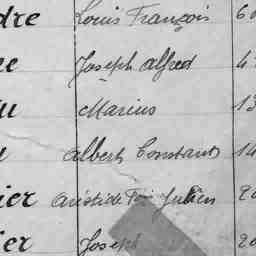 dre Louis François 60
ne Joseph Alfred 4
u Marius 13
u Albert Constant 14
ier Aristide Julien 20
ier Joseph 20